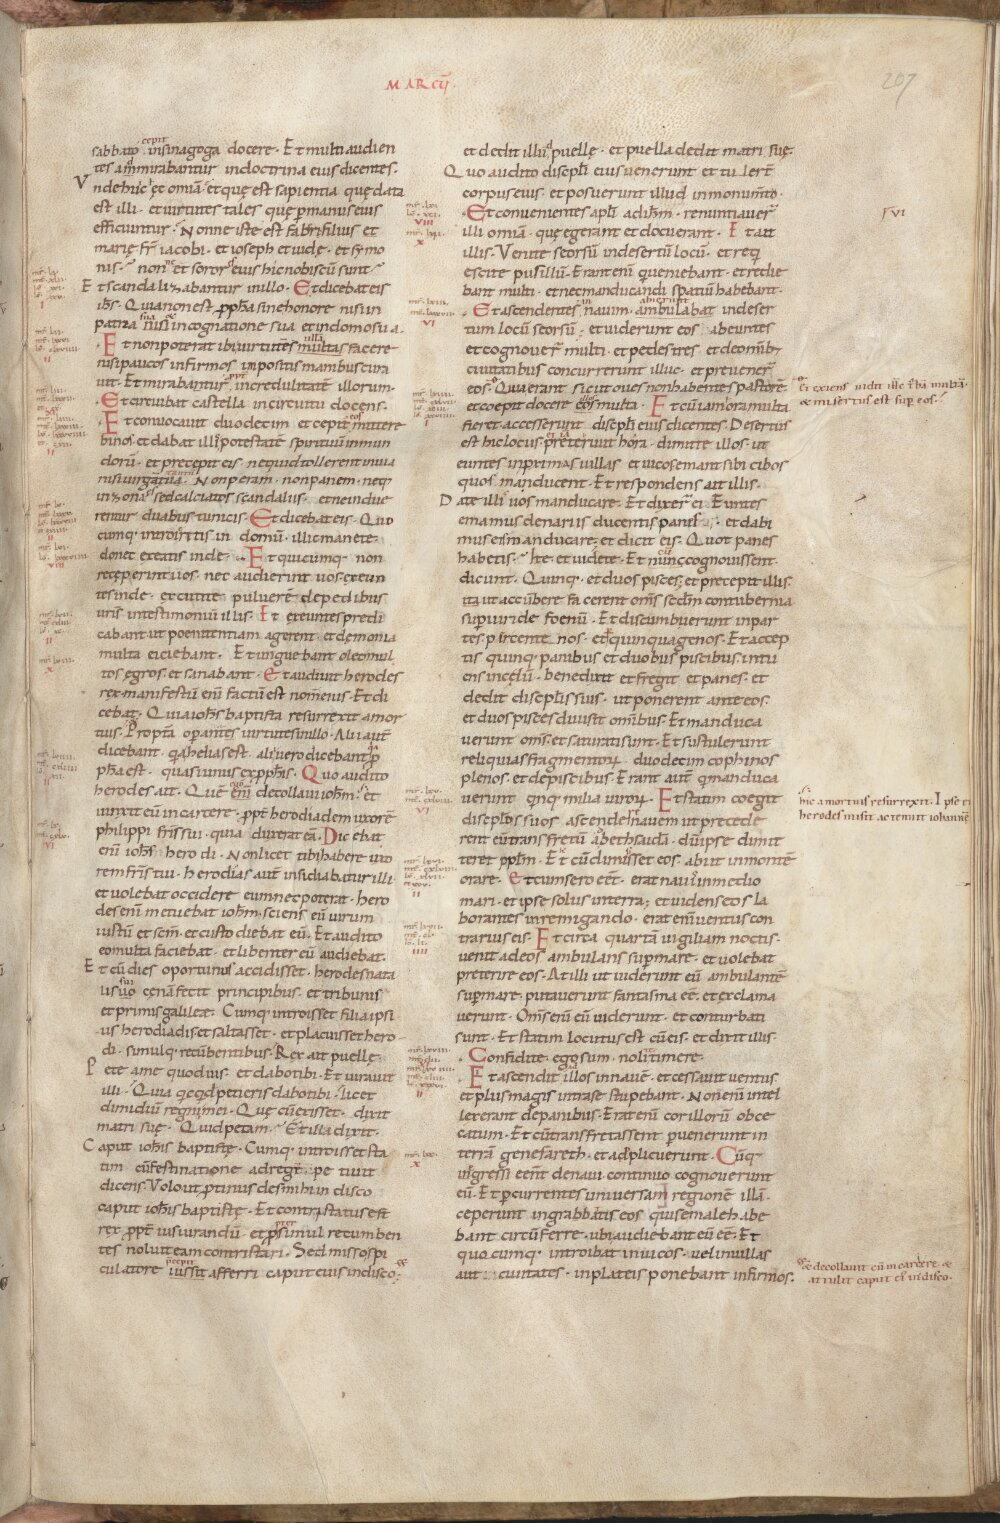 MARCUS
207
sabbato cepit insinagoga docere. Et multi audien
tes ammirabantur indoctrina eius dicentes.
Vnde huic hęc omia. et quę est sapientia quę data
est illi. et uirtutes tales quę p manus eius
efficiuntur. Nonne iste est fabri filius et
marię fr iacobi. et ioseph et iudę. et symo
nis? nonne et sorores eius hic nobiscū sunt?
Et scandalizabantur in illo. Et dicebat eis
ihs. Quia non est ppha sine honore nisi in
patria sua et in cognatione sua et in domo sua.
Et non poterat ibi uirtutes ullas facere
nisi paucos infirmos inpositis manibus cura
uit. Et mirabantur ppt incredulitatē illorum.
Et circuibat castella in circuitu docens.
Et conuocauit duodecim et cepit eos mittere
binos. et dabat illis potestatē spirituū inmun
dorū. et precepit eis nequid tollerent in uia
nisi uirgā tantū. Non peram. non panem. neq;
in zona es sed calciatos scandaliis. et ne indue
rentur duabus tunicis. Et dicebat eis. Quo
cumq; introieritis in domū. illic manete
donec exeatis inde. Et quicumq; non
receperint uos. nec audierint uos. exeun
tes inde. excutite puluerē de pedibus
uris in testimoniū illis. Et exeuntes predi
cabant ut poenitentiam agerent. et demonia
multa eiciebant. Et unguebant oleo mul
tos egros. et sanabant. Et audiuit herodes
rex. manifestū enī factū est nomen eius. Et di
cebat. Quia iohs baptista resurrexit a mor
tuis. Propta operantes uirtutes in illo. Alii autē
dicebant. qa helias est. alii uero dicebant qa p
pha est. quasi unus ex pphis. Quo audito
herodes ait. Quē ego decollaui iohm.
uinxit eū in carcere. ppt herodiadem uxorē
philippi fris sui. quia duxerat eā. Dicebat
enī iohs herodi. Non licet tibi habere uxo
rem fris tui. herodias autē insidiabatur illi.
et uolebat occidere eum nec poterat. hero
des enī metuebat iohm. sciens eū uirum
iustū et scm. et custodiebat eū. Et audito
eo multa faciebat. et libenter eū audiebat.
Et cū dies oportunus accidisset. herodes nata
lis sui cenā fecit principibus. et tribunis
et primis galileae. Cumq; introisset filia ipsi
us herodiadis et saltasset. et placuisset hero
di. simulq; recūbentibus. Rex ait puellę.
Pete a me quod uis. et dabo tibi. Et iurauit
illi. Quia qcqd petieris dabo tibi. licet
dimidiū regni mei. Quę cū exisset. dixit
matri suę. Quid petam? Et illa dixit.
Caput iohis baptistę. Cumq; introisset sta
tim cū festinatione ad regē. petiuit
dicens. Volo ut ptinus des mihi in disco
caput iohis baptistę. Et contristatus est
rex. ppt iusiurandū. et ppter simul recumben
tes noluit eam contristari. Sed misso spi
culatore precepit afferri caput eius in disco.
et dedit illud puellę. et puella dedit matri suę.
Quo audito discpli eius uenerunt et tulerť
corpus eius. et posuerunt illud in monumto.
Et conuenientes apli ad ihm. renuntiauer
illi omia. quę egerant et docuerant. Et ait
illis. Venite seorsū in desertū locū. et req
escite pusillū. Erant enī qui ueniebant. et redie
bant multi. et nec manducandi spatiū habebant.
Et ascendentes in nauim. abierunt in deser
tum locū seorsū. et uiderunt eos abeuntes
et cognouer multi. et pedestres et de omib;
ciuitatibus concurrerunt illuc. et preuener
eos. Qui erant sicut oues non habentes pastorē
et coepit docere illos multa. Et cū iam hora multa
fieret accesserunt discpli eius dicentes. Desertus
est hic locus. et iā preteriit hora. dimitte illos. ut
euntes in primas uillas et uicos emant sibi cibos
quos manducent. Et respondens ait illis.
Date illis uos manducare. Et dixer ei. Euntes
emamus denariis ducentis panes. et dabi
mus eis manducare. et dicit eis. Quot panes
habetis? Ite et uidete. Et cū cognouissent
dicunt. Quinq; et duos pisces. et precepit illis.
ita ut accūbere facerent oms scdm contubernia
sup uiride foenū. Et discumbuerunt in par
tes p centenos. et quinquagenos. Et accep
tis quinq; panibus et duobus piscibus. intu
ens in cęlū. benedixit et fregit et panes. et
dedit discplis suis. ut ponerent ante eos.
et duos pisces diuisit omibus. Et manduca
uerunt oms. et saturati sunt. Et sustulerunt
reliquias fragmentorū. duodecim cophinos
plenos. et de piscibus. Erant autē q manduca
uerunt qnq; milia uirorū. Et statim coegit
discplos suos ascendere nauem ut precede
rent eū trans fretū ad bethsaida. dū ipse dimit
teret pplm. Et cū dimisisset eos. abiit in montē
orare. Et cum sero eet. erat nauis in medio
mari. et ipse solus in terra. et uidens eos la
borantes in remigando. erat enī uentus con
trarius eis. Et circa quartā uigiliam noctis.
uenit ad eos ambulans sup mare. et uolebat
preterire eos. At illi ut uiderunt eū ambulantē
sup mare. putauerunt fantasma eē. et exclama
uerunt. Oms enī eū uiderunt. et conturbati
sunt. Et statim locutus est cū eis. et dixit illis.
Confidite. ego sum. nolite timere.
Et ascendit ad illos in nauē. et cessauit uentus
et plus magis intra se stupebant. Non enī intel
lexerant de panibus. Erat enī cor illorū obce
catum. Et cū transfretassent peruenerunt in
terrā genesareth. et adplicuerunt. Cūq;
egressi eent de naui. continuo cognouerunt
eū. Et pcurrentes uniuersam regionē illā.
ceperunt in grabbatis eos qui se male habe
bant circūferre. ubi audiebant eū eē. Et
quocumq; introibat in uicos. uel in uillas
aut ciuitates. in plateis ponebant infirmos.
Et exiens uidit ihs tbā multā.
& misertus est sup eos.
hic a mortuis resurrexit. Ipse
herodes misit ac tenuit iohannē
& decollauit eū in carcere. &
attulit caput ei in disco.